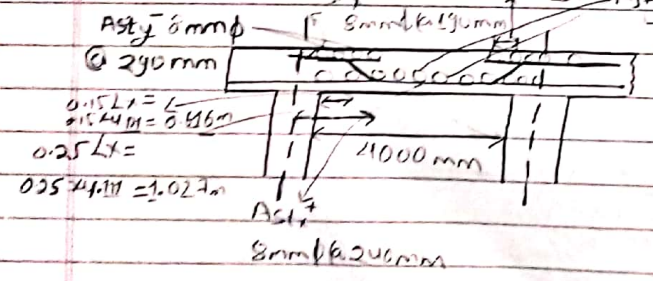 Asty⁻ 8mmϕ
8mmϕ@190mm
@ 290mm
0.15Lx = L
0.15x4.111 = 0.616m
0.25Lx =
0.25x4.111 = 1.027m
4000mm
Astx⁺
8mmϕ@240mm